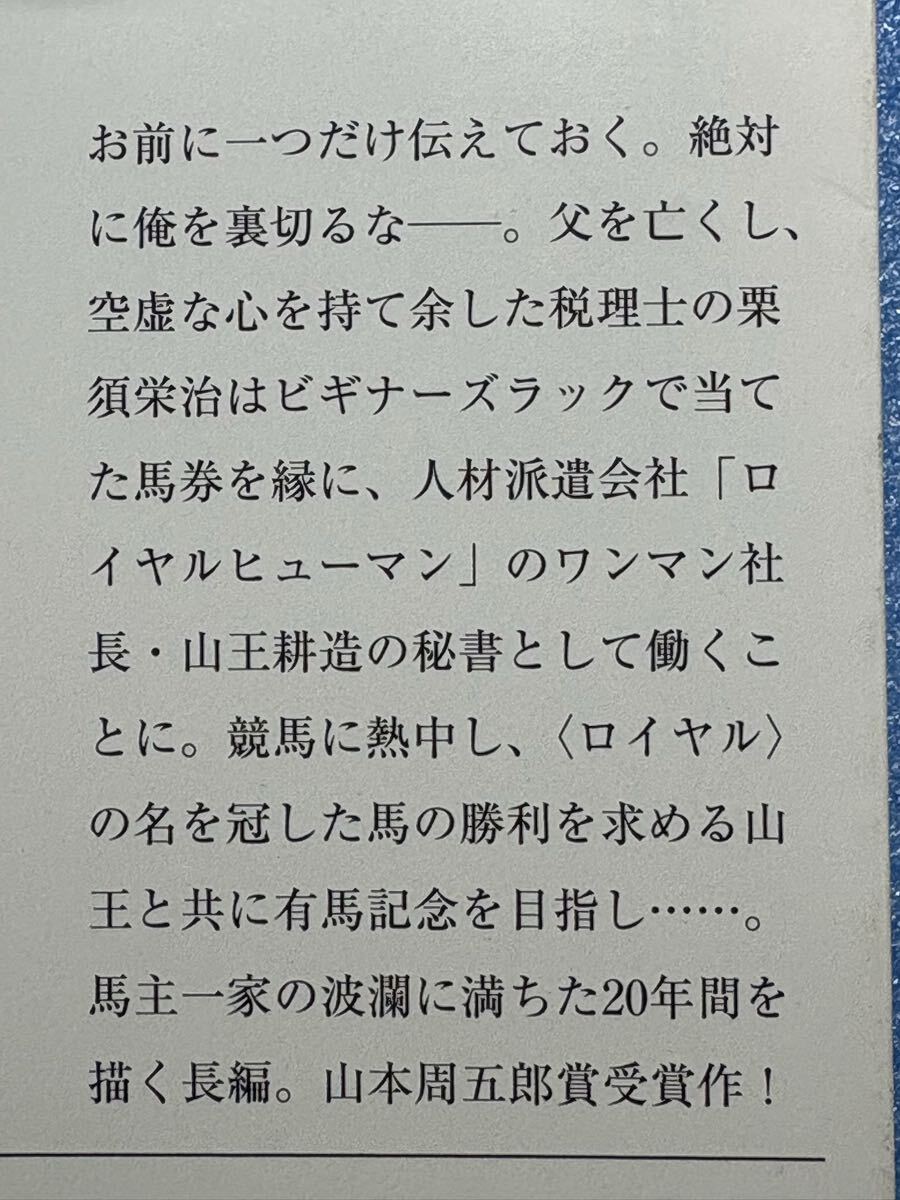 お前に一つだけ伝えておく。絶対
に俺を裏切るな――。父を亡くし、
空虚な心を持て余した税理士の栗
須栄治はビギナーズラックで当て
た馬券を縁に、人材派遣会社「ロ
イヤルヒューマン」のワンマン社
長・山王耕造の秘書として働くこ
とに。競馬に熱中し、〈ロイヤル〉
の名を冠した馬の勝利を求める山
王と共に有馬記念を目指し……。
馬主一家の波瀾に満ちた20年間を
描く長編。山本周五郎賞受賞作！